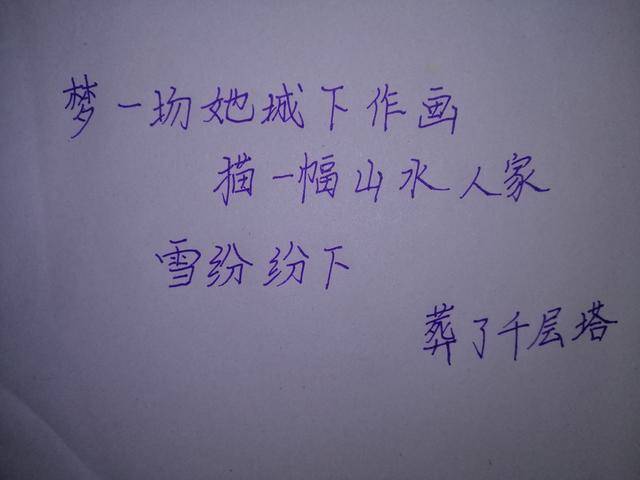 梦一场她城下作画
描一幅山水人家
雪纷纷下
葬了千层塔